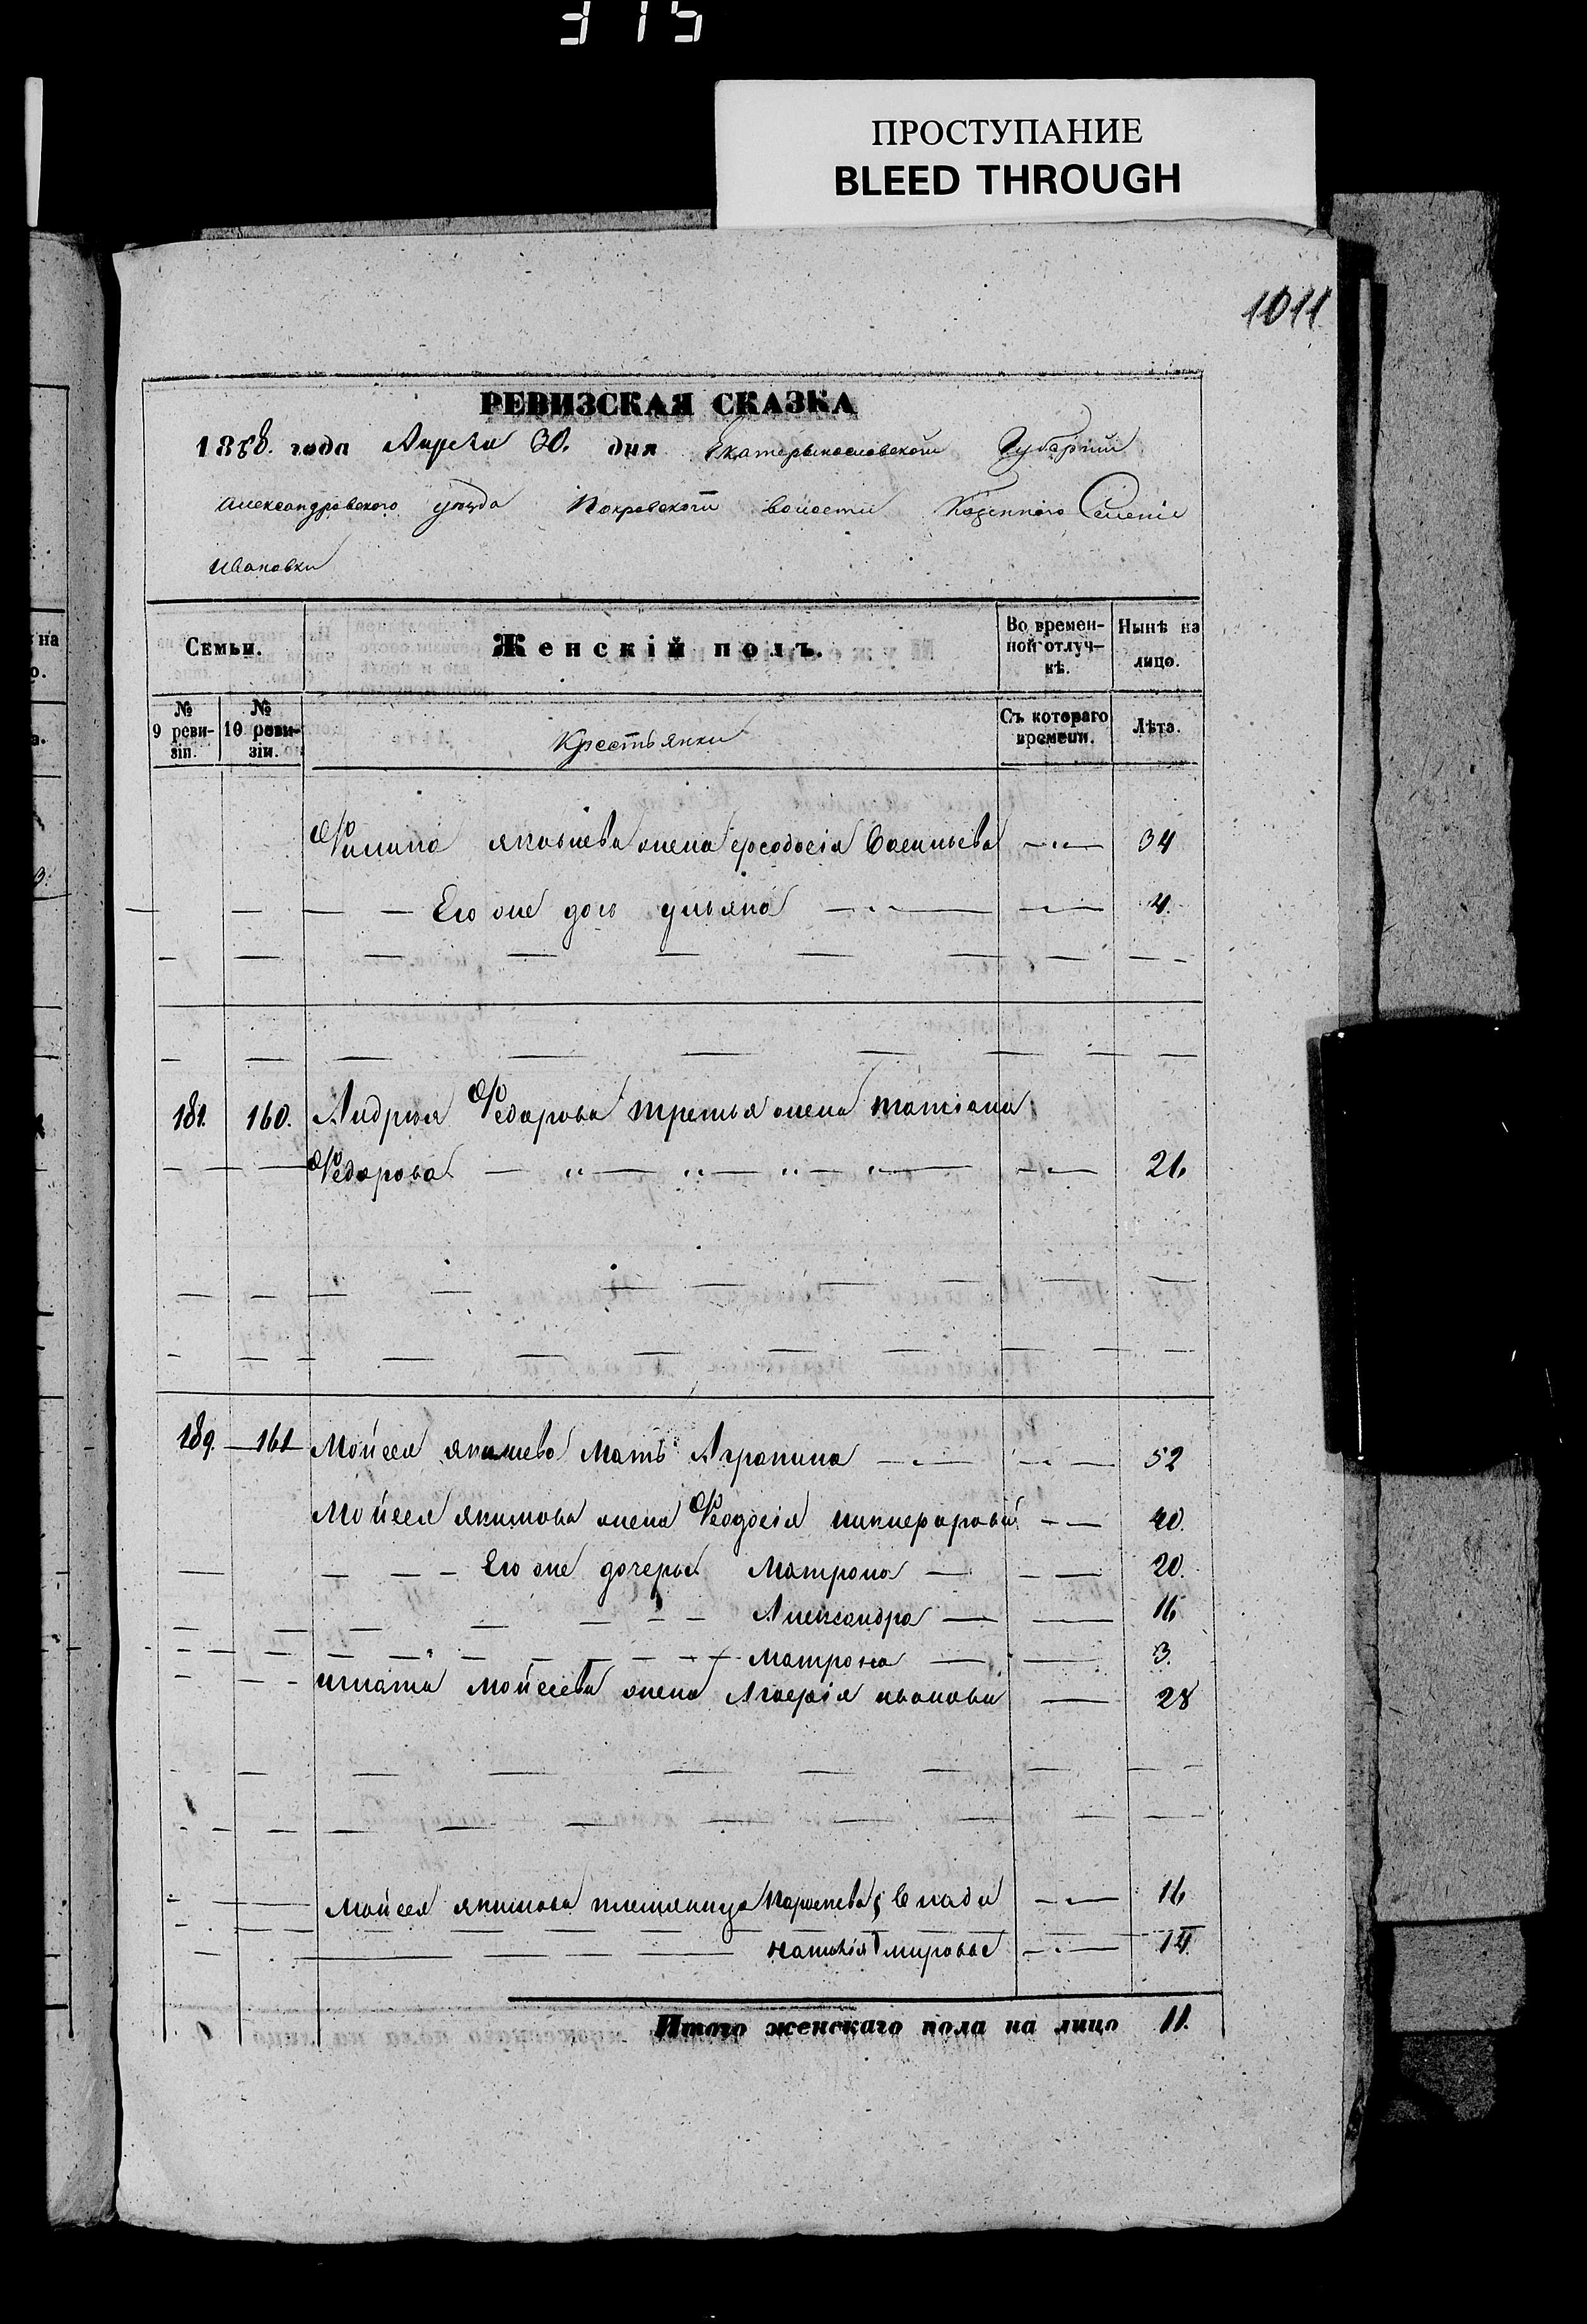 315
ПРОСТУПАНИЕ
BLEED THROUGH
1011
РЕВИЗСКАЯ СКАЗКА
1858. года Апреля 30. дня Екатеринославской Губернии
Александровского уезда Покровской волости Казенного Селения
Ивановки
Семьи. Женскій полъ. Во времен-ной отлуч-кѣ. Нынѣ на лицо.
№ 9 реви-зіи. № 10 реви-зіи. Крестьянки Съ котораго времени. Лѣта.
Филипа Яковлева жена Феодосія Васильева 34
Его же дочь Ульяна 4.
181. 160. Андрея Федорова третья жена Татiана
Федорова 26
189. 161 Мойсея Якимова Мать Агрипина 52
Мойсея Якимова жена Феодосія Никиефорова 40.
Его же дочерья Матрона 20.
Александра 16
Матрона 3.
Игната Мойсеева жена Агафія Иванова 28
Мойсея Якимова племяница 16
Наталія 14
Итого женскаго пола на лицо 11.